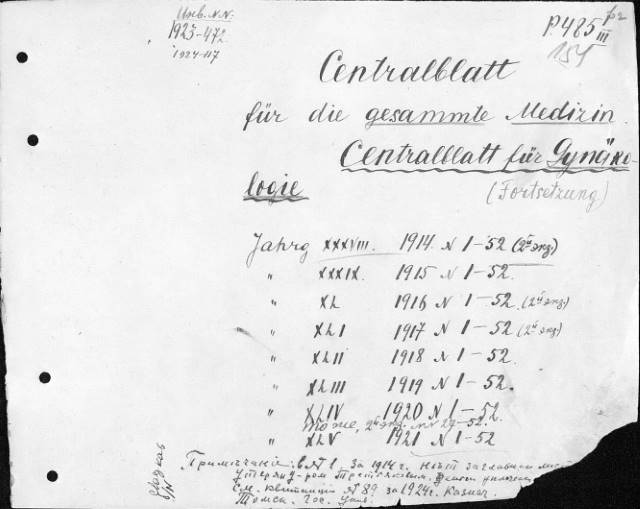 Инв. NN:
1923-472
1924-117
P.485
III
154
Centralblatt
für die gesammte Medizin.
Centralblatt für Gynäko-
logie
(Fortsetzung)
Jahrg XXXVIII. 1914. N 1-52 (2й экз.)
" XXXIX. 1915 N 1-52.
" XL 1916 N 1-52. (2й экз.)
" XLI 1917 N 1-52 (2й экз.)
" XLII 1918 N 1-52.
" XLIII 1919 N 1-52.
" XLIV 1920 N 1-52.
2й экз. NN 27-52.
" XLV 1921 N 1-52
Примѣчаніе: в N 1 за 1914 г. нѣтъ заглавнаго
См. квитанцію N 89 за 1924 г. Казнач.
Томск. Гос. Унив.